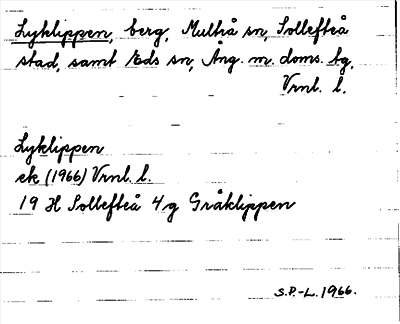 Lyklippen, berg, Multrå sn, Sollefteå
stad, samt Eds sn, Ång. m. doms. tg,
Vrnl. l.
Lyklippen
ek (1966) Vrnl. l.
19 H Sollefteå 4g Gråklippen
S.P.-L. 1966.